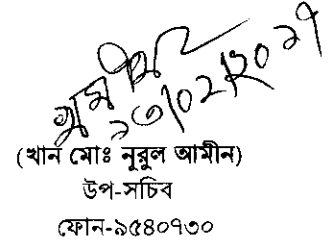 ২৩/০২/২০২১
(খান মোঃ নূরুল আমীন)
উপ-সচিব
ফোন-৯৫৪০৭৩০